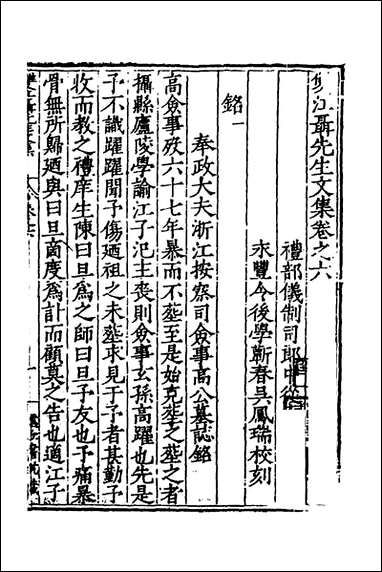 雙江聶先生文集卷之六
禮部儀制司郎中
永豐令後學蘄春吳鳳瑞校刻
銘一
奉政大夫浙江按察司僉事高公墓誌銘
高僉事歿六十七年暴而不塟至是始克塟之塟之者
攝縣廬陵學諭江子汜主喪則僉事玄孫高躍也先是
子不識躍躍聞予傷廼祖之未塟求見于予者甚勤予
收而教之禮庠生陳曰旦爲之師曰旦予友也予痛暴
骨無所歸廼與曰旦啇度爲計而顧莫之告也適江子